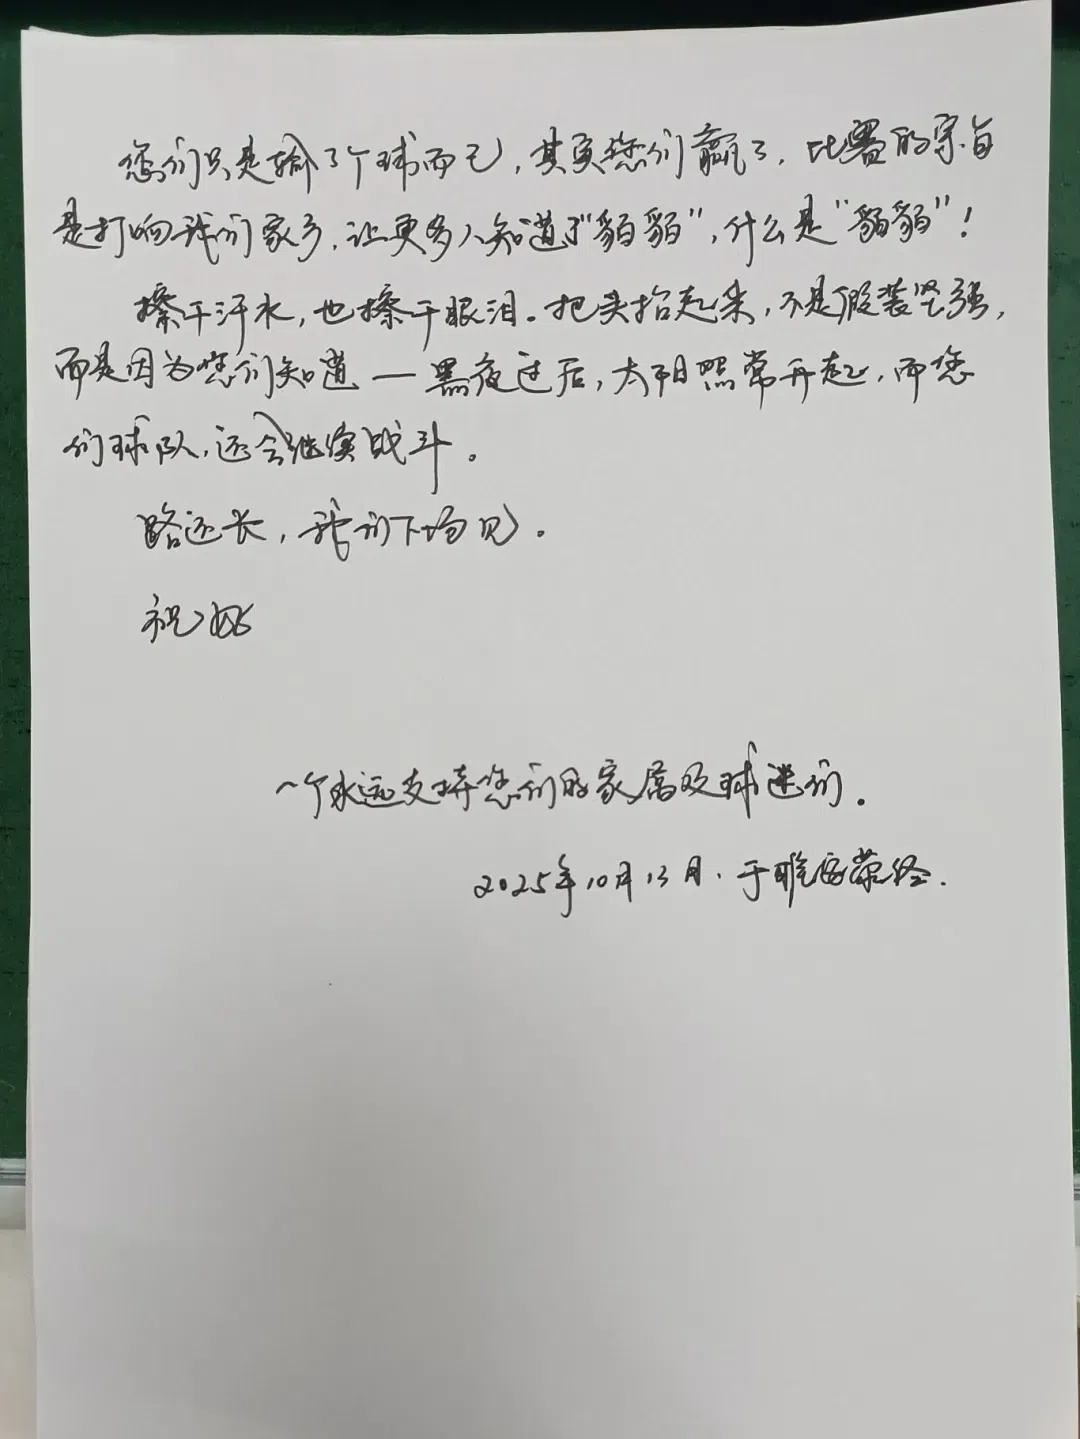 您们只是输了个球而已，其实您们赢了，比赛的宗旨
是打响我们家乡，让更多人知道了"貊貊"，什么是"貊貊"！
擦干汗水，也擦干眼泪。把头抬起来，不是假装坚强，
而是因为您们知道—黑夜过后，太阳照常升起，而您
们球队，还会继续战斗。
路还长，我们下场见。
祝好
一个永远支持您们的家属及球迷们。
2025年10月13日．于雅安荥经．